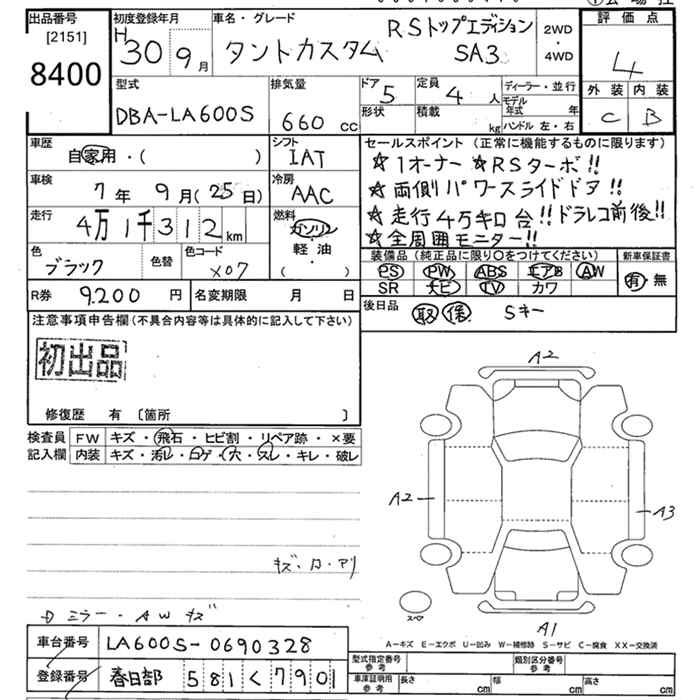 出品番号 初度登録年月 車名・グレード 評価点
[2151] H RSトップエディション 2WD
8400 30年 9月 タントカスタム SA3 ・ 4WD 4
型式 排気量 ドア 定員 ディーラー・並行 外装 内装
DBA-LA600S 660 cc 5 4 人 モデル年式 年 C B
形状 積載 kg ハンドル 左・右
車歴 シフト セールスポイント(正常に機能するものに限ります)
自家用・( ) IAT ☆1オーナー ☆RSターボ!!
車検 冷房 ☆両側パワースライドドア!!
7年 9月(25日) AAC
走行 燃料 ☆走行4万キロ台!!ドラレコ前後!!
4万1千312km ガソリン ☆全周囲モニター!!
軽・油
( )
色 色替 色コード 装備品(純正品に限り○をつけてください) 新車保証書
ブラック X07 PS PW ABS エアB AW 有・無
SR ナビ TV カワ
R券 9.200 円 名変期限 月 日 後日品
取 保 Sキー
注意事項申告欄(不具合内容等は具体的に記入して下さい)
初出品
修復歴 有 [箇所 ]
検査員 FW キズ・飛石・ヒビ割・リペア跡・×要
記入欄 内装 キズ・汚レ・コゲ・穴・スレ・キレ・破レ
A2
A2
A3
キズ・凹・アリ
スペア
ミラー・AWキズ
A1
A=キズ E=エクボ U=凹み W=補修跡 S=サビ C=腐食 XX=交換済
車台番号 LA600S-0690328
型式指定番号 参考 類別区分番号 参考
登録番号 春日部 581く7901
車庫証明用 参考 長さ cm 幅 cm 高さ cm